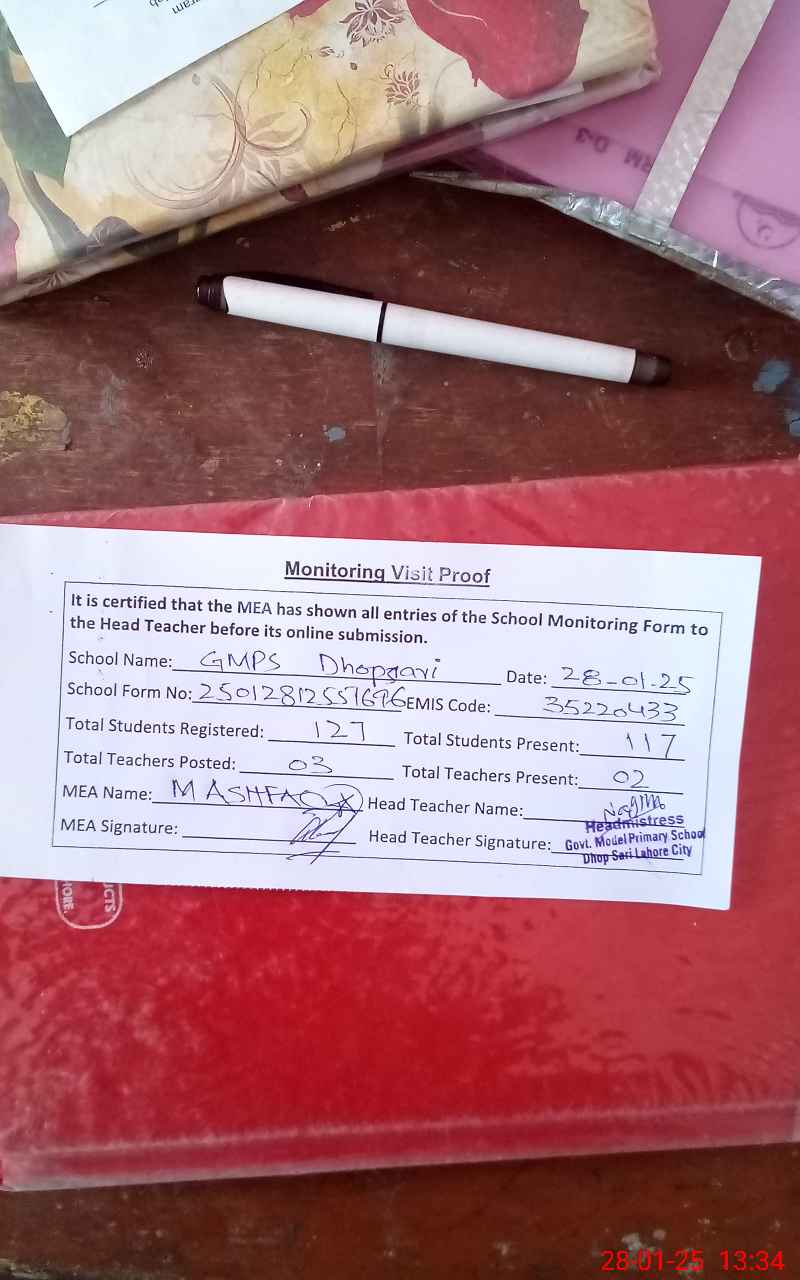 gram
RM D-3
Monitoring Visit Proof
It is certified that the MEA has shown all entries of the School Monitoring Form to
the Head Teacher before its online submission.
School Name: GMPS Dhopsari Date: 28-01-25
School Form No: 25012812557696 EMIS Code: 35220433
Total Students Registered: 127 Total Students Present: 117
Total Teachers Posted: 03 Total Teachers Present: 02
MEA Name: M ASHFAQ Head Teacher Name: Najma
MEA Signature: Head Teacher Signature:
Headmistress
Govt. Model Primary School
Dhop Sari Lahore City
UCTS
HORE.
28-01-25 13:34